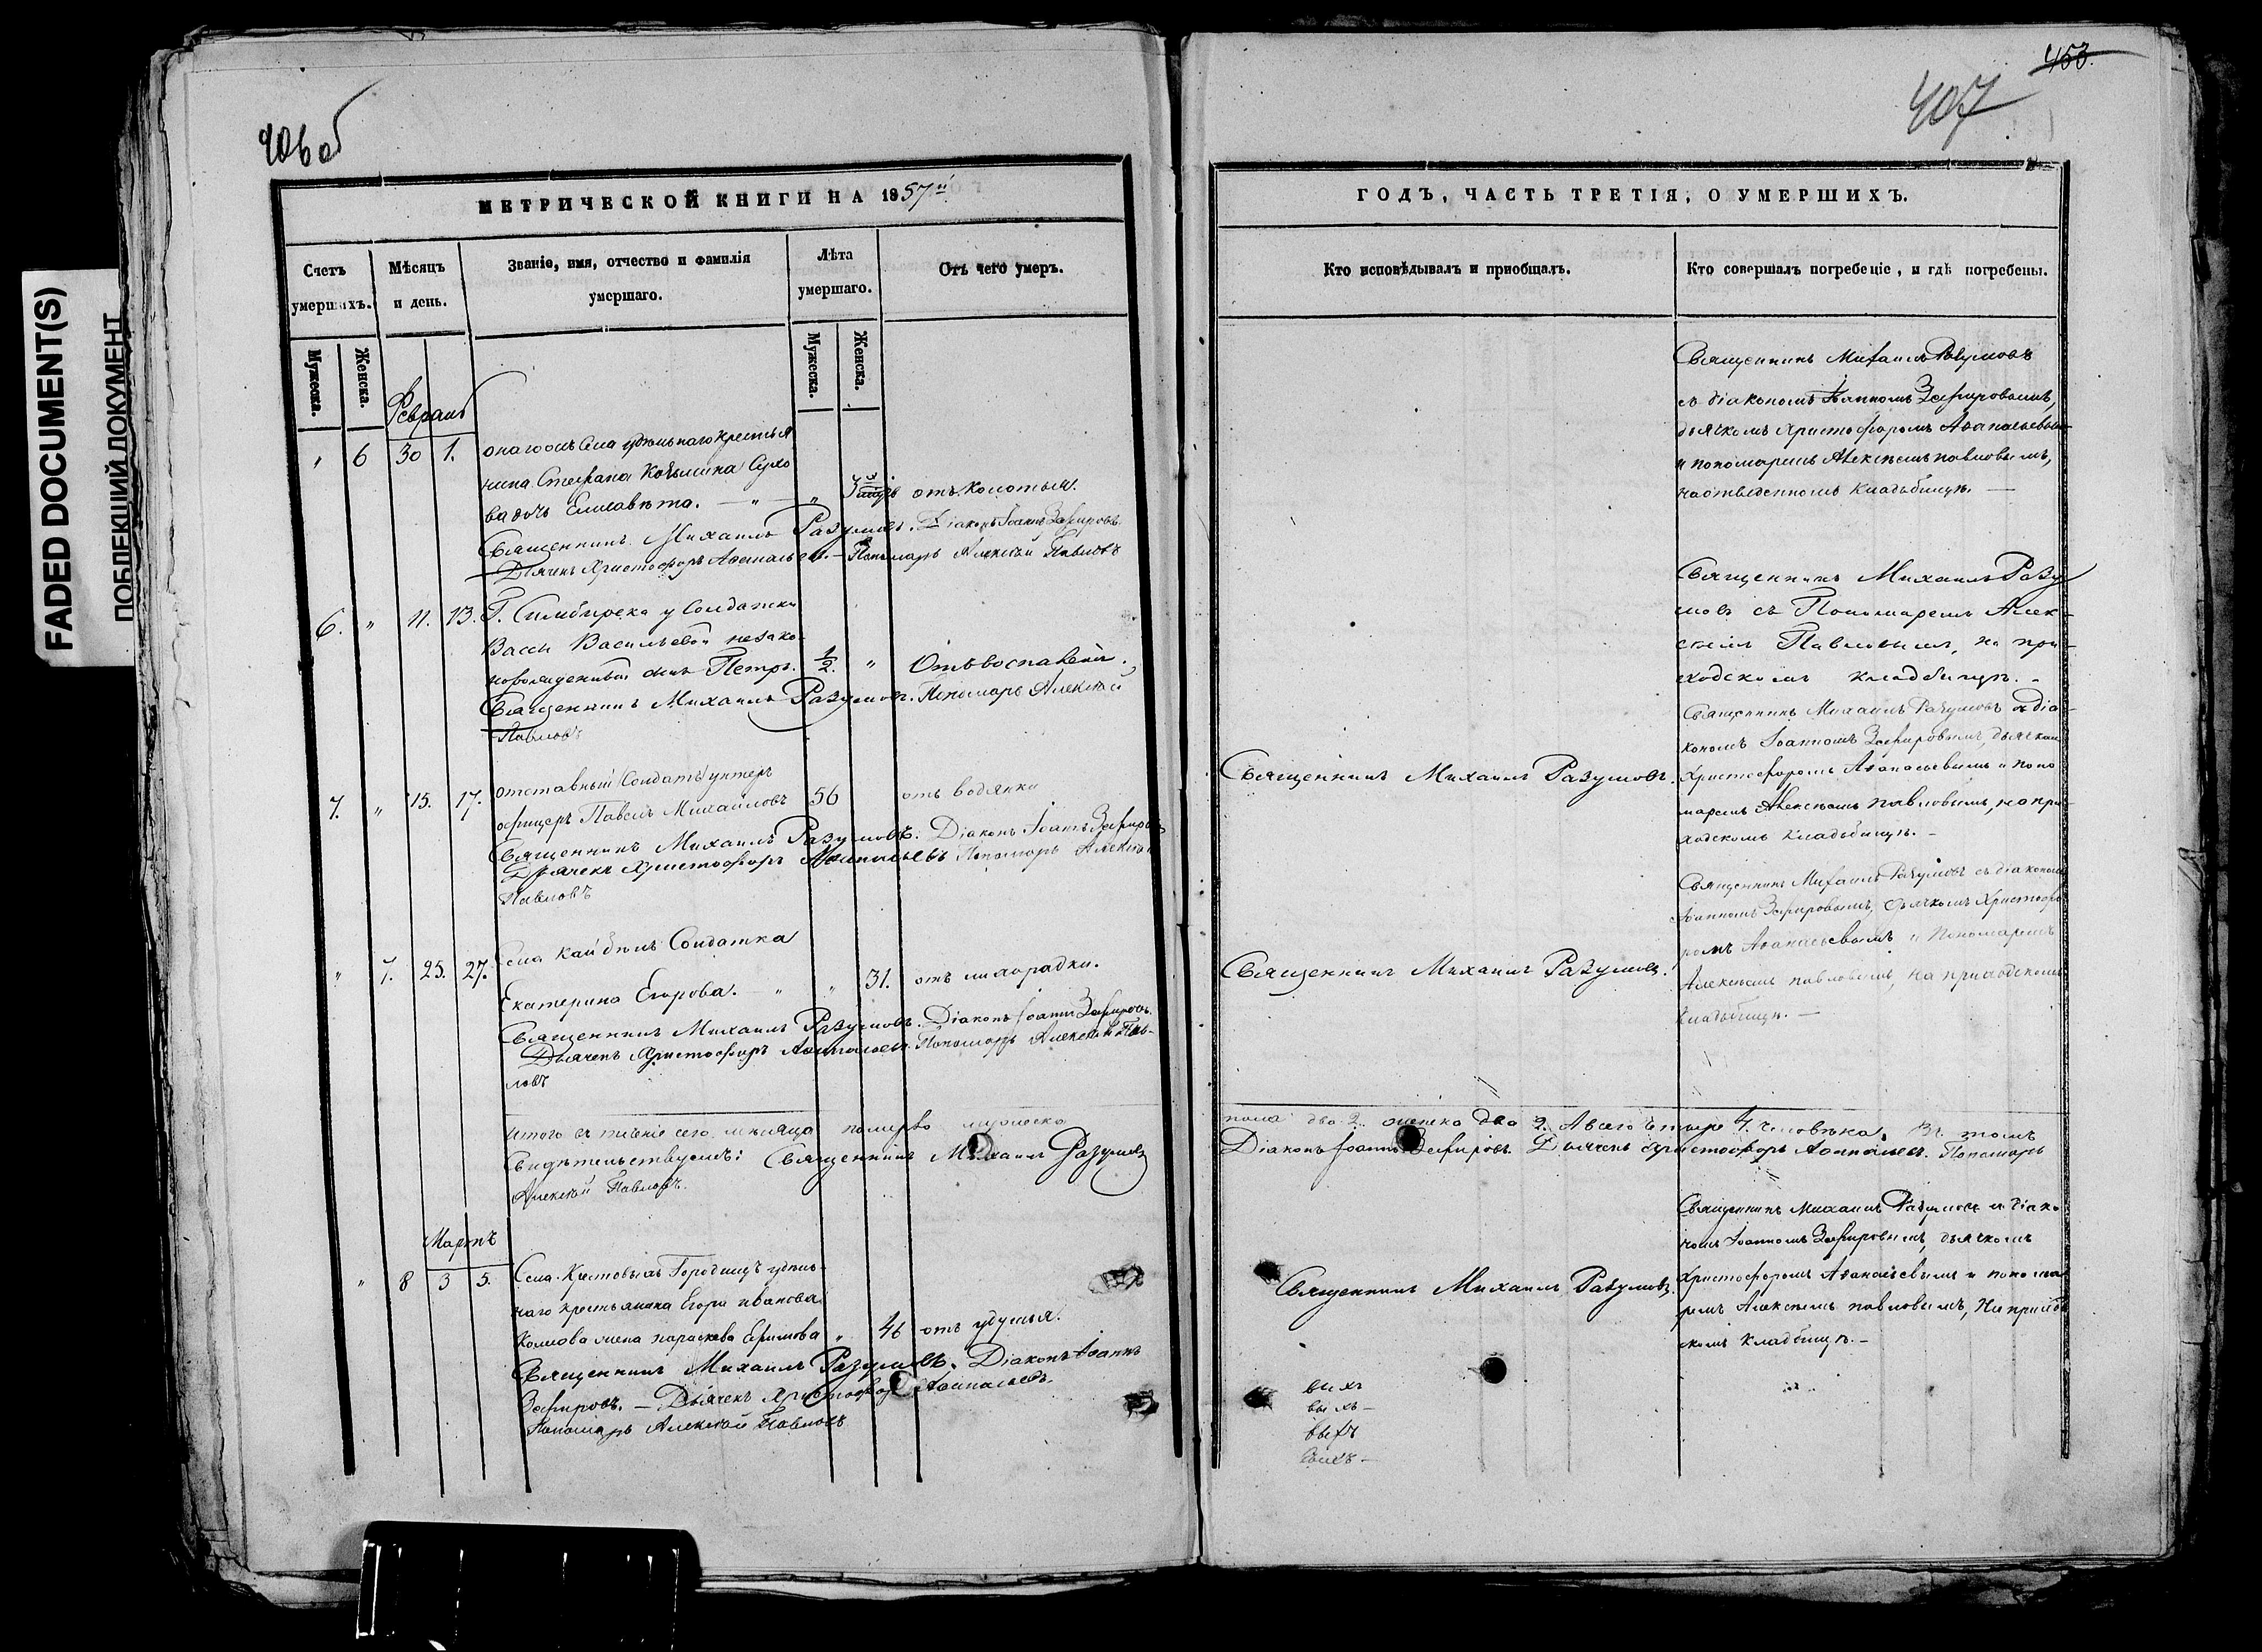 FADED DOCUMENT(S)
ПОБЛЕКШИЙ ДОКУМЕНТ
406 об
МЕТРИЧЕСКОЙ КНИГИ НА 1857й
Счетъ умершихъ.
Мѣсяцъ и день.
Званіе, имя, отчество и фамилія умершаго.
Лѣта умершаго.
Отъ чего умеръ.
Мужеска.
Женска.
Мужеска.
Женска.
Февраль
" 6 30 1. Села удѣльнаго крестья
нина Стефана
дочь Елисавета. — " — "
Священникъ Михаилъ Разумовъ. Діаконъ Іоаннъ Зефировъ
Дьячекъ Христофоръ Аѳанасьевъ. — Пономарь Алексѣй Павловъ
6. " 11. 13. Г. Симбирска у Солдатки
Вассы Васильевой незако-
норожденный сынъ Петръ. 1/2. " Отъ воспаленія.
Священникъ Михаилъ Разумовъ. Пономарь Алексѣй
Павловъ
7. " 15. 17. отставный Солдатъ унтеръ
офицеръ Павелъ Михайловъ 56 отъ водянки
Священникъ Михаилъ Разумовъ. Діаконъ Іоаннъ Зефировъ
Дьячекъ Христофоръ Аѳанасьевъ Пономарь Алексѣй
Павловъ
" 7. 25. 27. Села Кайбѣлъ Солдатка
Екатерина Егорова. — " " 31. отъ лихорадки.
Священникъ Михаилъ Разумовъ. Діаконъ Іоаннъ Зефировъ.
Дьячекъ Христофоръ Аѳанасьевъ. Пономарь Алексѣй Пав-
ловъ
Итого въ теченіе сего мѣсяца померло мужеска
Свидѣтельствуемъ: Священникъ Михаилъ Разумовъ
Алексѣй Павловъ.
Мартъ
" 8 3 5. Села Крестовыхъ Городищъ удѣль-
наго крестьянина Егора Иванова
жена Параскева Ефимова " 46 отъ удушья.
Священникъ Михаилъ Разумовъ. Діаконъ Іоаннъ
Зефировъ. — Дьячекъ Христофоръ Аѳанасьевъ.
Пономарь Алексѣй Павловъ
453.
407
ГОДЪ, ЧАСТЬ ТРЕТІЯ, О УМЕРШИХЪ.
Кто исповѣдывалъ и пріобщалъ.
Кто совершалъ погребеніе, и гдѣ погребены.
Священникъ Михаилъ Разумовъ
съ діакономъ Іоанномъ Зефировымъ,
дьячкомъ Христофоромъ Аѳанасьевымъ
и пономаремъ Алексѣемъ Павловымъ,
на отведенномъ кладьбищѣ. —
Священникъ Михаилъ Разу
мовъ съ Пономаремъ Алек-
сѣемъ Павловымъ, на при-
ходскомъ кладбищѣ.
Священникъ Михаилъ Разумовъ.
Священникъ Михаилъ Разумовъ съ діа-
кономъ Іоанномъ Зефировымъ, дьячкомъ
Христофоромъ Аѳанасьевымъ и поно
маремъ Алексѣемъ Павловымъ, на при-
ходскомъ кладьбищѣ. —
Священникъ Михаилъ Разумовъ.
Священникъ Михаилъ Разумовъ съ діакономъ
Іоанномъ Зефировымъ, дьячкомъ Христофо
ромъ Аѳанасьевымъ и Пономаремъ
Алексѣемъ Павловымъ, на приходскомъ
кладьбищѣ. —
пола два 2. женска два 2. А всего четыре 4. человѣка. Въ томъ
Діаконъ Іоаннъ Зефировъ. Дьячекъ Христофоръ Аѳанасьевъ. Пономарь
Священникъ Михаилъ Разумовъ.
Священникъ Михаилъ Разумовъ съ діако
номъ Іоанномъ Зефировымъ, дьячкомъ
Христофоромъ Аѳанасьевымъ и понома
ремъ Алексѣемъ Павловымъ, на приход
скомъ кладбищѣ. —